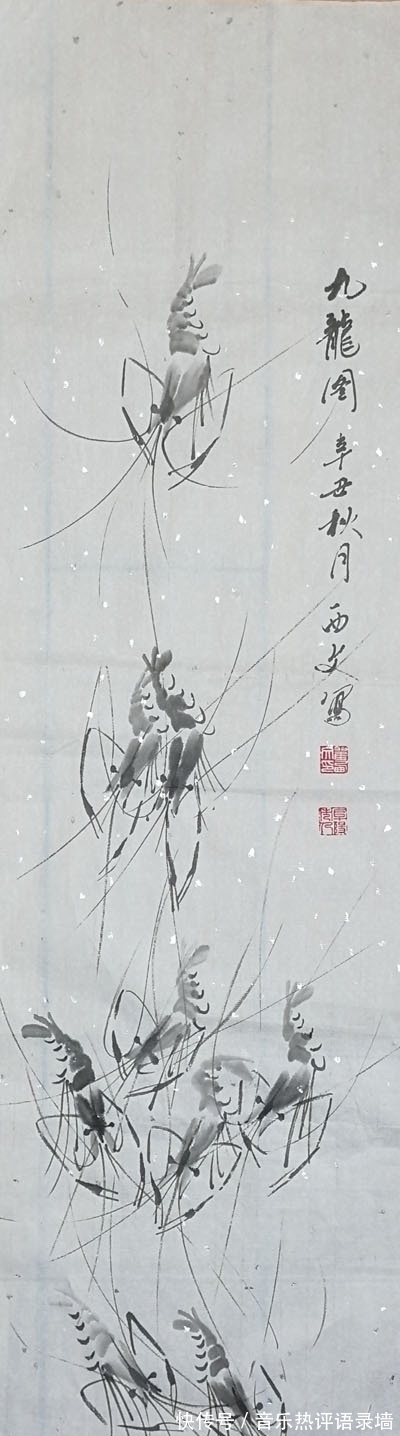 九龍图 辛丑秋月 西文寫
快传号／音乐热评语录墙